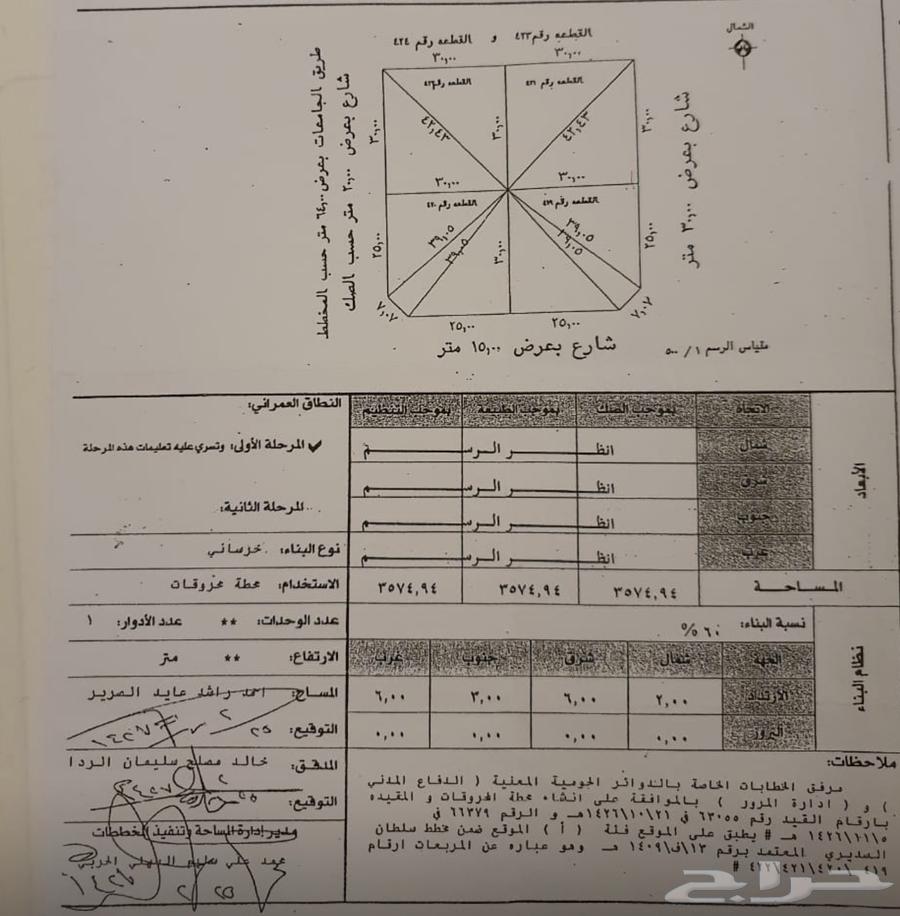 الشمال
القطعه رقم ٤٢٣ و القطعه رقم ٤٢٤
٣٠,٠٠ ٣٠,٠٠
القطعه رقم ٤٢١ القطعه رقم ٤٢٢
شارع بعرض ٣٠,٠٠ متر
طريق الجامعات بعرض ٦٤,٠٠ متر حسب المخطط
شارع بعرض ٢٠,٠٠ متر حسب الصك
٣٠,٠٠ ٤٢,٤٣ ٣٠,٠٠ ٤٢,٤٣ ٣٠,٠٠
٣٠,٠٠ ٣٠,٠٠
القطعه رقم ٤١٩ القطعه رقم ٤٢٠
٢٥,٠٠ ٣٩,٠٥ ٣٩,٠٥ ٣٠,٠٠ ٣٩,٠٥ ٣٩,٠٥ ٢٥,٠٠
٧,٠٧ ٧,٠٧
٢٥,٠٠ ٢٥,٠٠
شارع بعرض ١٥,٠٠ متر
مقياس الرسم ١/ ٥٠٠
الأبعاد
الاتجاه بموجب الصك بموجب الطبيعة بموجب التنظيم
شمال انظـــر الـرســـم
شرق انظـــر الـرســـم
جنوب انظـــر الـرســـم
غرب انظـــر الـرســـم
المســاحـة ٣٥٧٤,٩٤ ٣٥٧٤,٩٤ ٣٥٧٤,٩٤
نظام البناء
نسبة البناء: ٦٠ %
الجهة شمال شرق جنوب غرب
الارتداد ٢,٠٠ ٦,٠٠ ٣,٠٠ ٦,٠٠
البروز ٠,٠٠ ٠,٠٠ ٠,٠٠ ٠,٠٠
النطاق العمراني:
✔ المرحلة الأولى: وتسري عليه تعليمات هذه المرحلة
المرحلة الثانية:
نوع البناء: خرساني
الاستخدام: محطة محروقات
عدد الوحدات: ** عدد الأدوار: ١
الارتفاع: ** متر
المساح: احمد راشد عايد الصرير
التوقيع: ٢٥ / ٢ /
المدقق: خالد مصلح سليمان الردا
التوقيع:
مدير إدارة المساحة وتنفيذ المخططات
محمد علي سليم
ملاحظات:
مرفق الخطابات الخاصة بالدوائر الحومية المعنية ( الدفاع المدني
) و ( ادارة المرور ) بالموافقة على انشاء محطة المحروقات و المقيده
بارقام القيد رقم ٦٣٠٥٥ في ١٤٢٦\١٠\٢١هـ و الرقم ٦٦٣٧٩ في
١٤٢٦\١١\٥ هـ # يطبق على الموقع فئة ( أ ) الموقع ضمن مخطط سلطان
السديري المعتمد برقم ١٣\ف\١٤٠٩ هـ وهو عباره عن المربعات ارقام
٤١٩\٤٢٠\٤٢١\٤٢٢ #
حراج